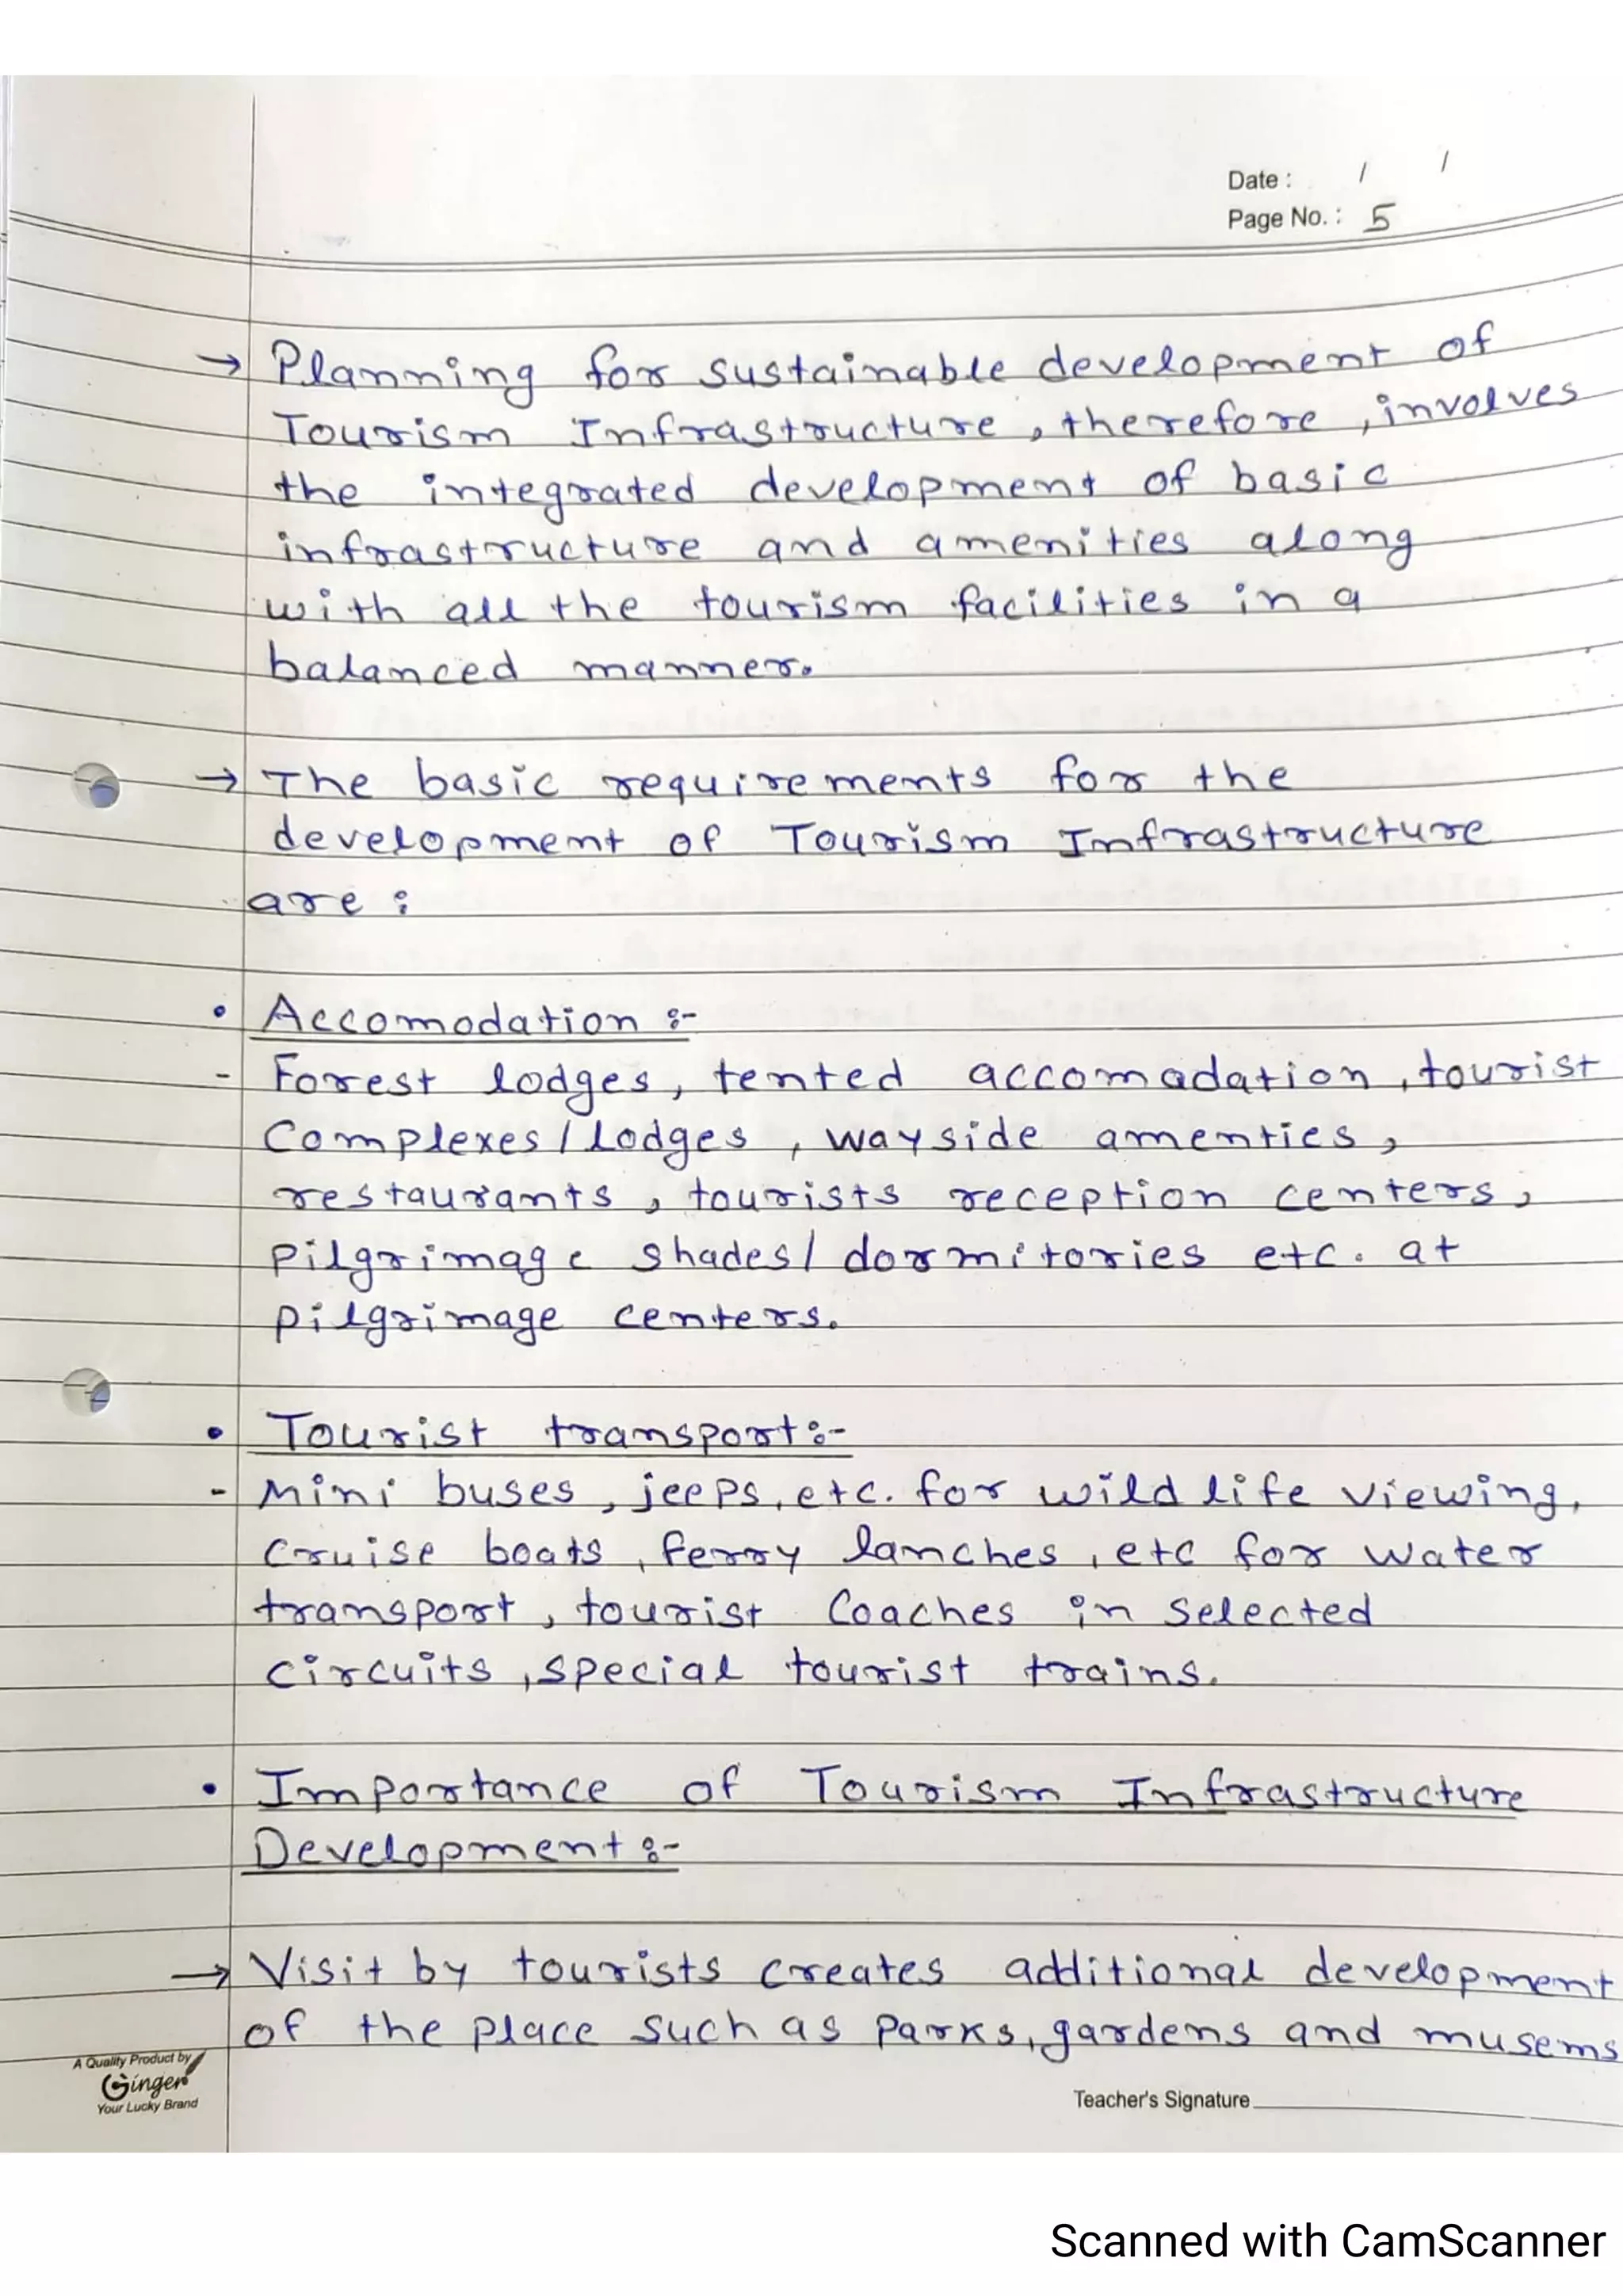 Date : / /
Page No. : 5
→ Planning for sustainable development of
Tourism Infrastructure, therefore, involves
the integrated development of basic
infrastructure and amenities along
with all the tourism facilities in a
balanced manner.
→ The basic requirements for the
development of Tourism Infrastructure
are :
• Accomodation :-
- Forest lodges, tented accomadation, tourist
Complexes/lodges, wayside amenties,
restaurants, tourists reception centers,
pilgrimage shades/dormitories etc. at
pilgrimage centers.
• Tourist transport:-
- Mini buses, jeeps, etc. for wild life viewing,
cruise boats, ferry lanches, etc for water
transport, tourist Coaches in selected
circuits, special tourist trains.
• Importance of Tourism Infrastructure
Development :-
→ Visit by tourists creates additional development
of the place such as parks, gardens and musems
A Quality Product by
Ginger
Your Lucky Brand
Teacher's Signature
Scanned with CamScanner